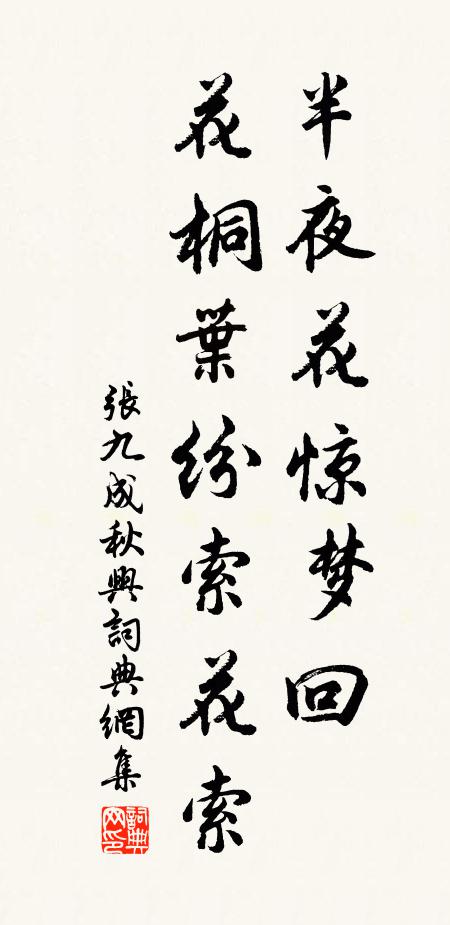 半夜花惊梦回
花桐葉纷索花索
張九成秋興詞典網集
詞典网印